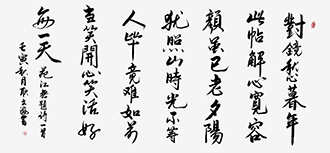 對鏡愁暮年
此帖解心寬容
顏雖已老夕陽
猶照山時光不等
人畢竟難如前
當笑開心笑活好
每一天
壬寅秋月